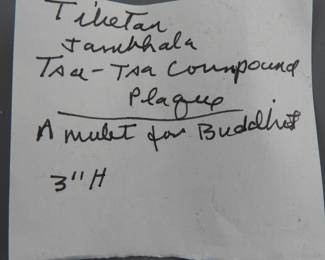 Tibetan
Jambhala
Tsa-Tsa Compound
Plaque
Amulet for Buddhist
3"H